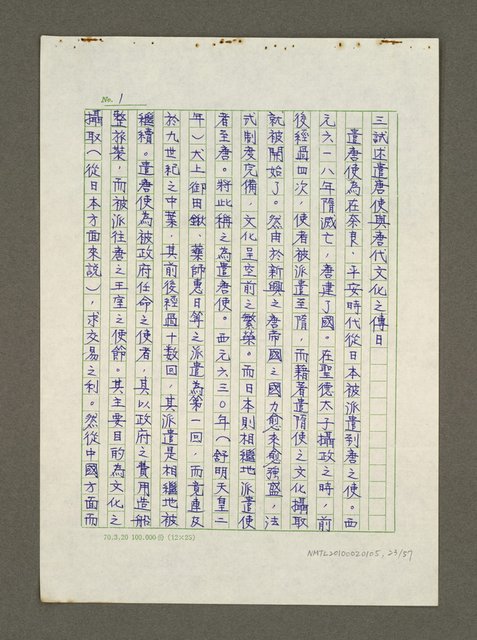 No. 1
三試述遣唐使與唐代文化之傳日
遣唐使為在奈良、平安時代從日本被派遣到唐之使。西
元六一八年隋滅亡，唐建了國。在聖德太子攝政之時，前
後經過四次，使者被派遣至隋，而藉著遣隋使之文化攝取
就被開始了。然由於新興之唐帝國之國力愈來愈強盛，法
式制度完備，文化呈空前之繁榮。而日本則相繼地派遣使
者至唐。將此稱之為遣唐使。西元六三〇年（舒明天皇二
年）犬上御田鍬、藥師惠日等之派遣為第一回，而竟連及
於九世紀之中葉，其前後經過十數回，其派遣是相繼地被
繼續。遣唐使為被政府任命之使者，其以政府之費用造船
整旅裝，而被派往唐之王室之使節。其主要目的為文化之
攝取（從日本方面來說），求交易之利。然從中國方面而
70.3.20 100.000份 (12×25)
NMTL20100020105, 23/57